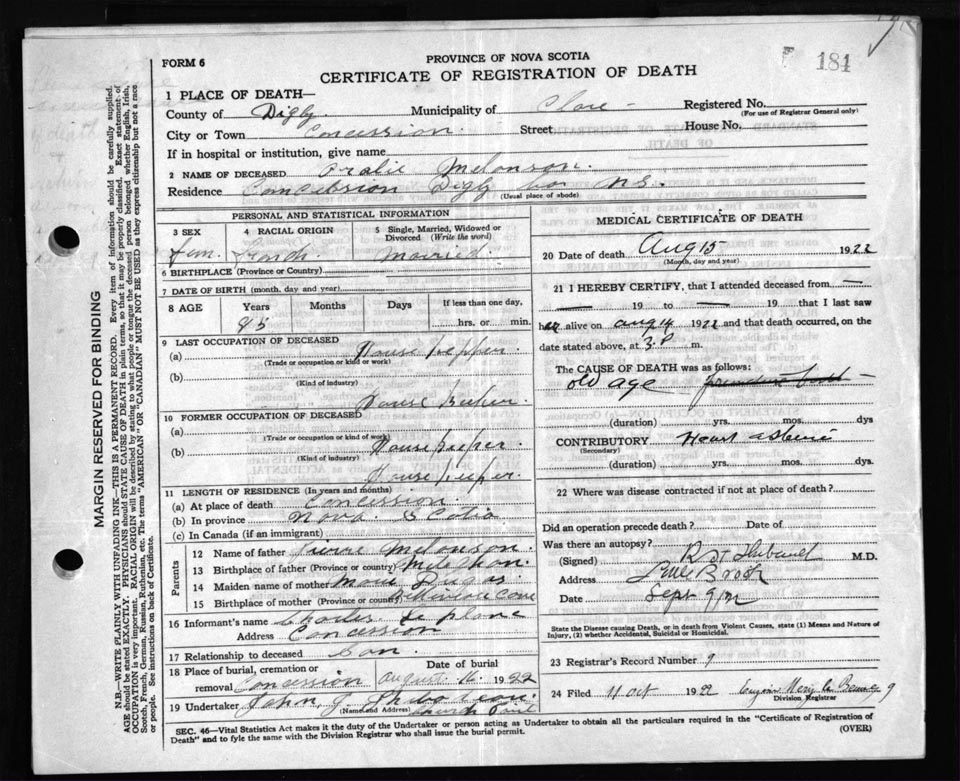 184
FORM 6
PROVINCE OF NOVA SCOTIA
CERTIFICATE OF REGISTRATION OF DEATH
1 PLACE OF DEATH—
County of Digby. Municipality of Clare - Registered No.
(For use of Registrar General only)
City or Town Concession. Street House No.
If in hospital or institution, give name
2 NAME OF DECEASED Oralie Melonson.
Residence Concession Digby Co. N.S.
(Usual place of abode)
PERSONAL AND STATISTICAL INFORMATION
3 SEX 4 RACIAL ORIGIN 5 Single, Married, Widowed or Divorced (Write the word)
fem. French. Married.
6 BIRTHPLACE (Province or Country)
7 DATE OF BIRTH (month, day and year)
8 AGE Years Months Days If less than one day,
85 hrs. or min.
9 LAST OCCUPATION OF DECEASED
(a) House keeper.
(Trade or occupation or kind of work)
(b)
(Kind of industry)
House
10 FORMER OCCUPATION OF DECEASED
(a)
(Trade or occupation or kind of work)
(b) House keeper.
(Kind of industry)
House keeper.
11 LENGTH OF RESIDENCE (In years and months)
(a) At place of death Concession.
(b) In province Nova Scotia
(c) In Canada (if an immigrant)
Parents
12 Name of father Pierre Melonson.
13 Birthplace of father (Province or country)
14 Maiden name of mother Dugas
15 Birthplace of mother (Province or country)
16 Informant's name Charles
Address Concession
17 Relationship to deceased Son.
18 Place of burial, cremation or removal Concession Date of burial August. 16. 1922
19 Undertaker John
(Name and Address) Church
MEDICAL CERTIFICATE OF DEATH
20 Date of death Aug 15 1922
(Month, day and year)
21 I HEREBY CERTIFY, that I attended deceased from —
— 19 to — 19 that I last saw
her alive on aug 14 1922 and that death occurred, on the
date stated above, at 3 P. m.
The CAUSE OF DEATH was as follows:
old age
(duration) yrs. mos. dys
CONTRIBUTORY Heart
(Secondary)
(duration) yrs. mos. dys.
22 Where was disease contracted if not at place of death?
Did an operation precede death? Date of
Was there an autopsy?
(Signed) M.D.
Address Little Brook
Date Sept 9
State the Disease causing Death, or in death from Violent Causes, state (1) Means and Nature of
Injury, (2) whether Accidental, Suicidal or Homicidal.
23 Registrar's Record Number 9
24 Filed 4 Oct 1922
Division Registrar
SEC. 46—Vital Statistics Act makes it the duty of the Undertaker or person acting as Undertaker to obtain all the particulars required in the "Certificate of Registration of
Death" and to fyle the same with the Division Registrar who shall issue the burial permit. (OVER)
MARGIN RESERVED FOR BINDING
N.B.—WRITE PLAINLY, WITH UNFADING INK—THIS IS A PERMANENT RECORD. Every item of information should be carefully supplied.
AGE should be stated EXACTLY. PHYSICIANS should STATE CAUSE OF DEATH in plain terms, so that it may be properly classified. Exact statement of
OCCUPATION is very important. RACIAL ORIGIN will be described by stating to what people or tongue the deceased person belonged whether English, Irish,
Scotch, French, German, Russian, Ruthenian, etc. The terms "AMERICAN" OR "CANADIAN" MUST NOT BE USED as they express citizenship but not a race
or people. See instructions on back of Certificate.